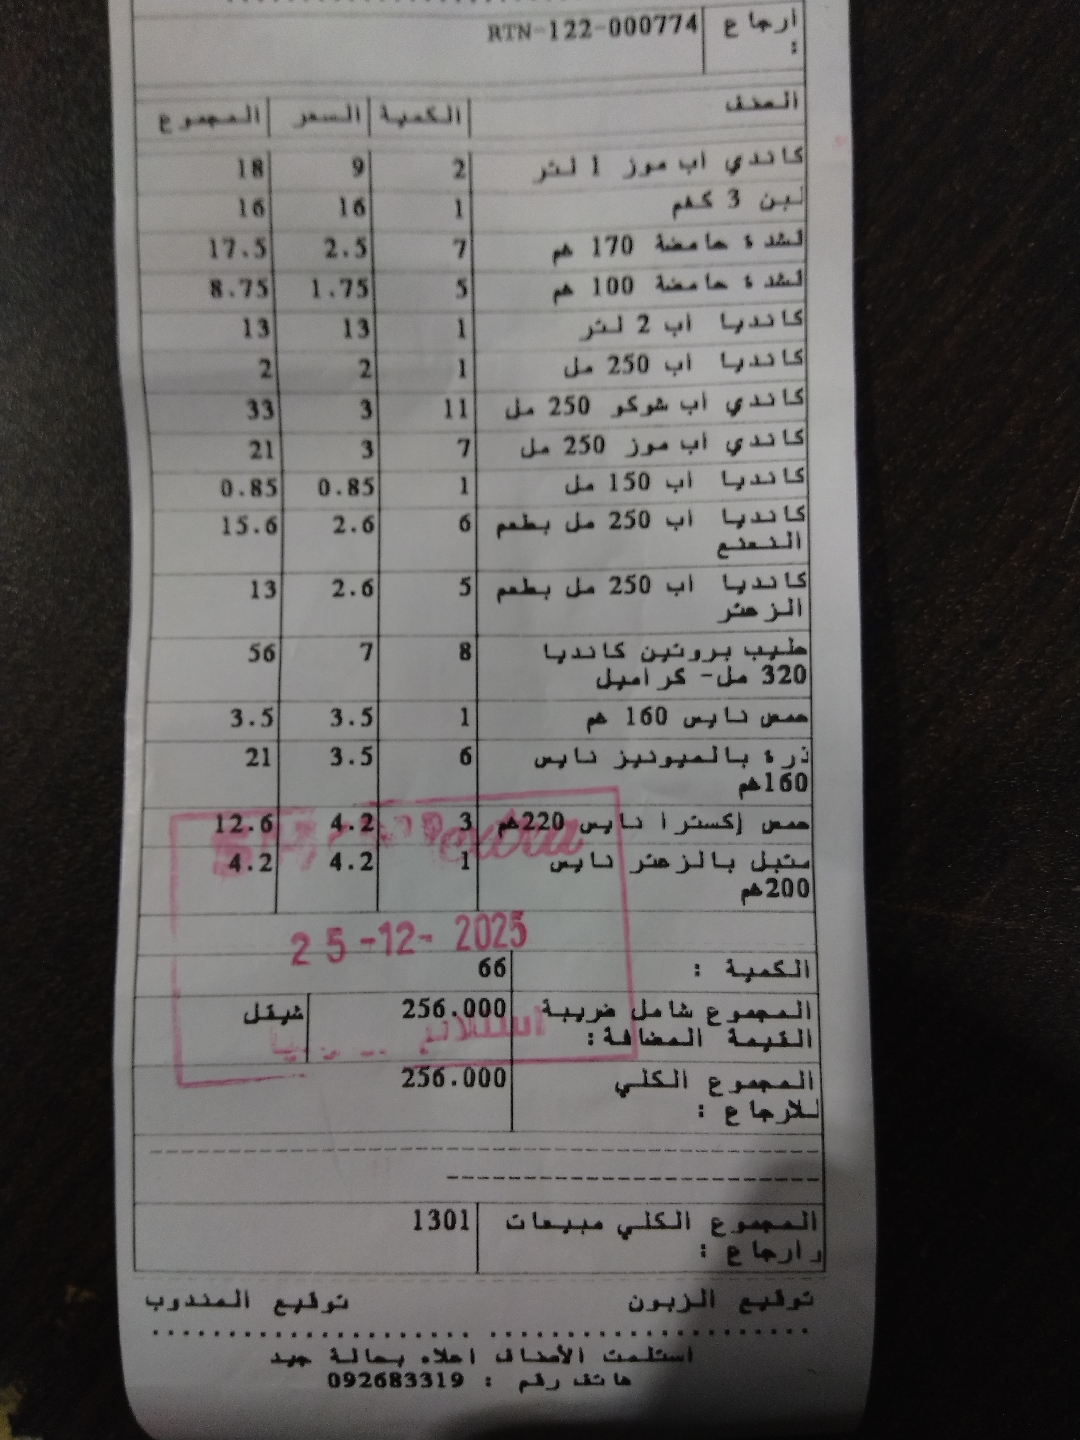 ارجاع : RTN-122-000774
الصنف الكمية السعر المجموع
كاندي اب موز 1 لتر 2 9 18
لبن 3 كغم 1 16 16
قشدة حامضة 170 غم 7 2.5 17.5
قشدة حامضة 100 غم 5 1.75 8.75
كانديا اب 2 لتر 1 13 13
كانديا اب 250 مل 1 2 2
كاندي اب شوكو 250 مل 11 3 33
كاندي اب موز 250 مل 7 3 21
كانديا اب 150 مل 1 0.85 0.85
كانديا اب 250 مل بطعم 6 2.6 15.6
النعنع
كانديا اب 250 مل بطعم 5 2.6 13
الزعتر
حليب بروتين كانديا 8 7 56
320 مل- كراميل
حمص نايس 160 غم 1 3.5 3.5
ذرة بالميونيز نايس 6 3.5 21
160غم
حمص إكسترا نايس 220غم 3 4.2 12.6
extra
متبل بالزعتر نايس 1 4.2 4.2
200غم
25-12-2025
الكمية : 66
المجموع شامل ضريبة 256.000 شيقل
القيمة المضافة:
استلام
المجموع الكلي 256.000
للارجاع :
المجموع الكلي مبيعات 1301
وارجاع :
توقيع الزبون توقيع المندوب
استلمت الأصناف اعلاه بحالة جيد
هاتف رقم : 092683319